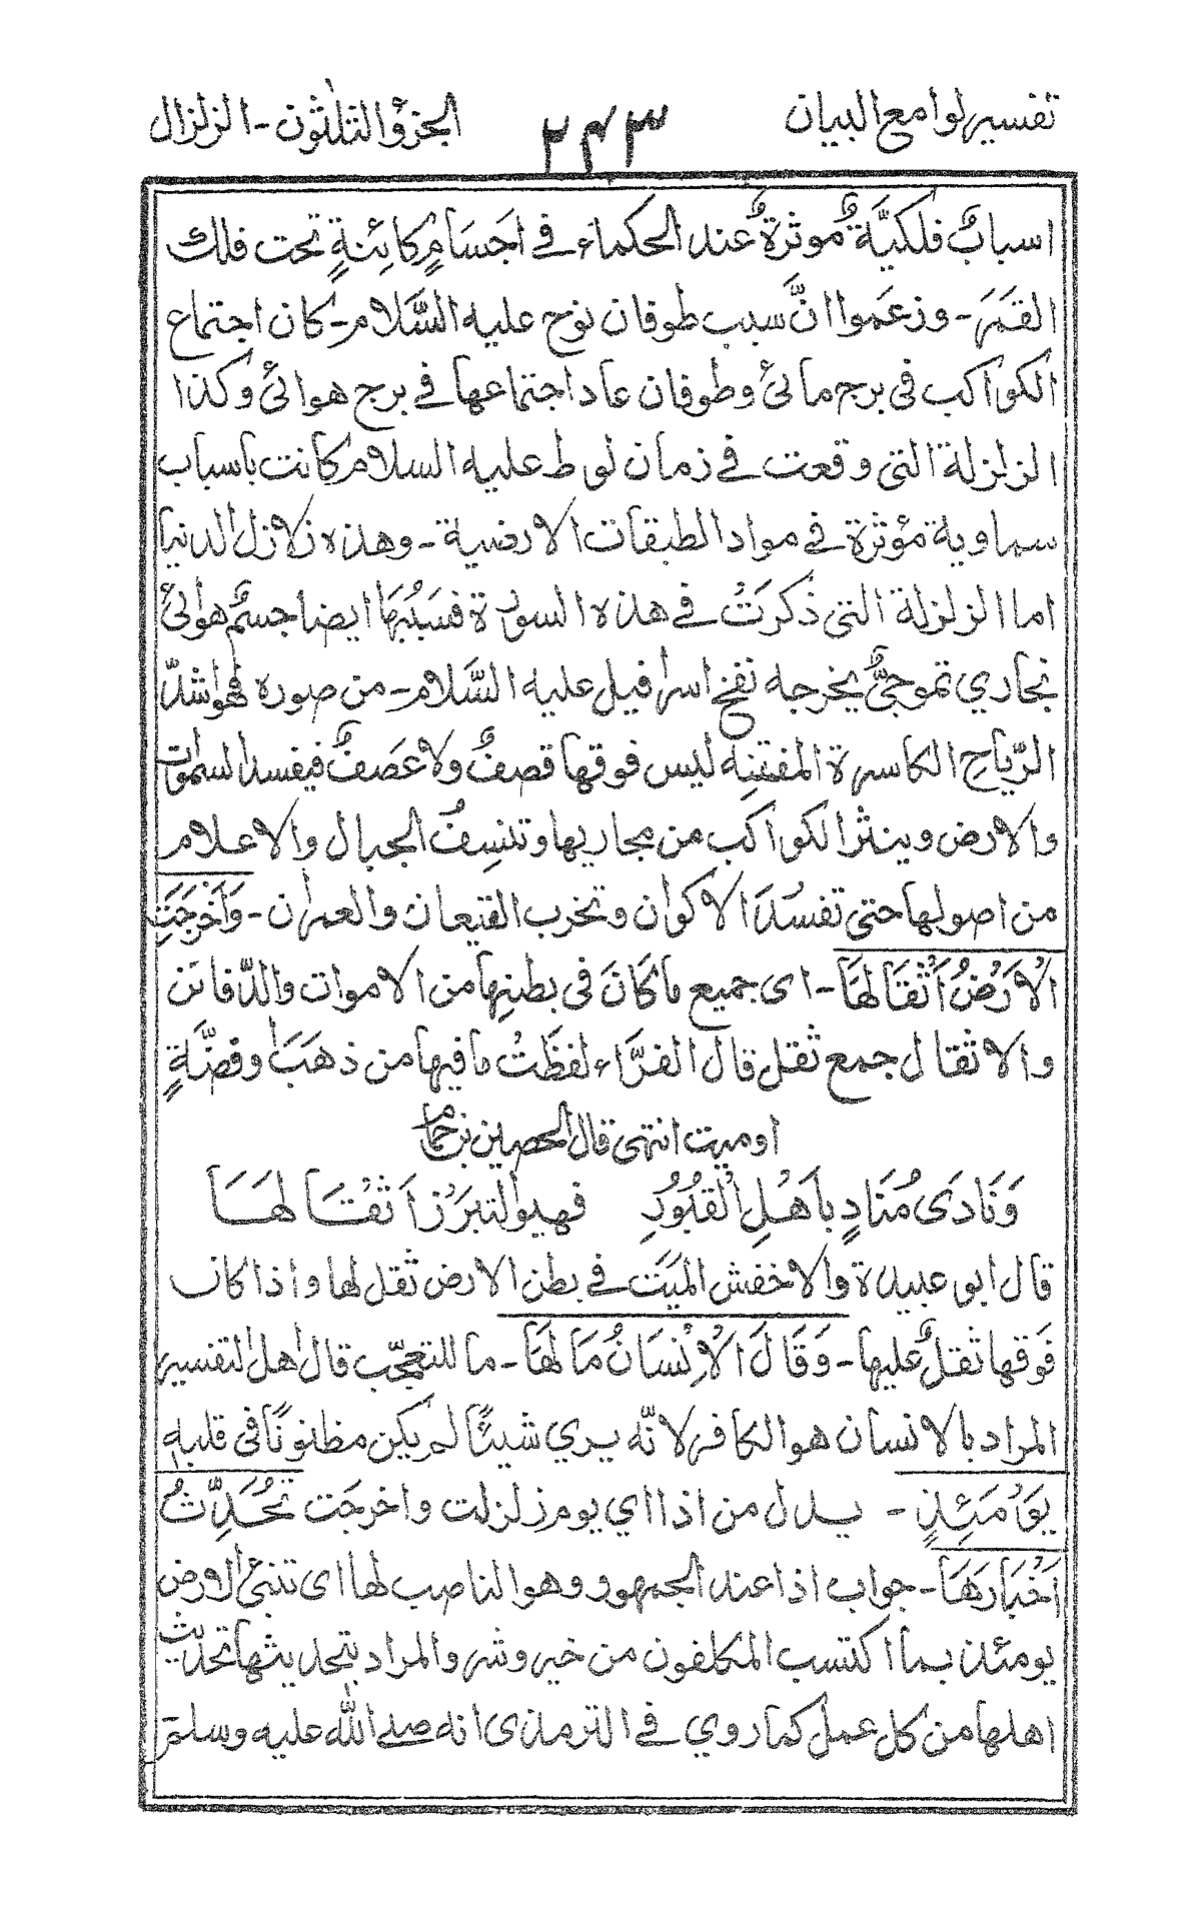 تفسير لوامع البيان ٢٤٣ الجزؤ الثلٰثون - الزلزال
اسبابٌ فلكيَّةٌ موثرةٌ عند الحكماء في اجَسَامٍ كائِنةٍ تحت فلك
القمَرَ - وزعَموا انَّ سبب طوفان نوح عليه السَّلام - كان اجتماع
الكواكب فى برج مائئ وطوفان عاد اجتماعها في برج هوائئ وكذا
الزلزلة التى وقعت في زمان لوط عليه السلام كانت باسباب
سماوية مؤثرة في مواد الطبقات الارضية - وهذه زلازل الدنيا
اما الزلزلة التى ذكرَتْ في هذه السورة فسَبَبُهَا ايضا جسمٌ هوائئ
بخاري تموجىٌّ يخرجه نفخ اسرافيل عليه السَّلام - من صوره فهواشدّ
الرّياح الكاسرة المفتنه ليس فوقها قصفٌ ولا عَصَفٌ فيفسد السمٰوات
والارض وينثر الكواكب من مجاريها وتنسِفُ الجبال والاعلام
من اصولها حتى تفسُدَ الاكوان وتخرب القيعان والعمران - وَاَخْرَجَتِ
الْاَرْضُ اَثْقَالَهَا - اى جميع ماكَانَ فى بطنِها من الاموات والدّفائن
والاثقال جمع ثقل قال الفرَّاء لفظَتْ مافيها من ذهَبَ وفضَّةٍ
اوميت انتهى قال الحصين بن حمام
وَنَادَى مُنَادٍ باَهْلِ الْقبُوْرِ فهبوا لتبرَزْ اَثْقَالهَا
قال ابو عبيدة والاخفش الميَت في بطن الارض ثقل لها واذا كان
فَوقها ثقلٌ عليها - وَقَالَ الْاِنْسَانُ مَا لَهَا - ما للتعجّب قال اهل التفسير
المراد بالانسان هو الكافر لانّه يري شيئًا لم يكن مظنونًا فى قلبه
يَوْمَئِذٍ - بدل من اذا اي يوم زلزلت واخرجت تُحَدِّثُ
اَخْبَارَهَا - جواب اذا عند الجمهور وهو الناصب لها اى تنبئ الارض
يومئذ بما اكتسب المكلفون من خير وشر والمراد بتحديثها تحديث
اهلها من كل عمل كما روي في الترمذى انه صلے اللّٰه عليه وسلم